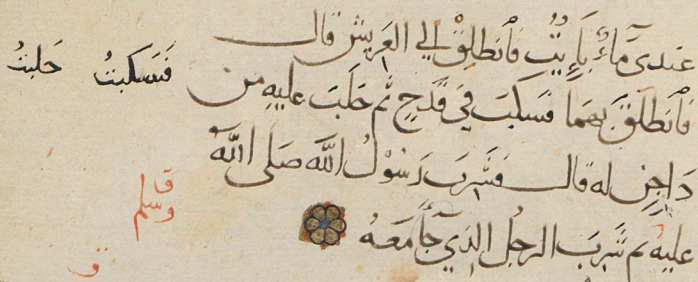 عِندِى مَآءٌ بَآئِتٌ فَانْطَلِقْ إِلَى العَرِيشِ قال
فَانْطَلَقَ بِهِمَا فَسَكَبَ فِي قَدَحٍ ثُمَّ حَلَبَ عَلَيْهِ مِن
دَاجِنٍ له قال فَشَرِبَ رَسُوْلُ اللَّهِ صَلَى اللَّهُ
عَلَيْهِ ثم شَرِبَ الرجُلُ الذِي جَآءَ مَعَهُ
فَسَكبتُ حَلبتُ
وسلم